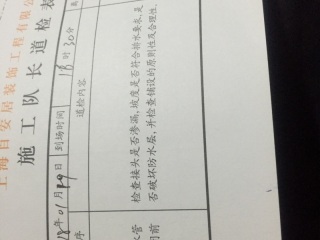 上海百安居装饰工程有限公
施工队长道检装
年01月29日 到场时间 18时30分
序 道检内容
水管 检查接头是否渗漏,坡度是否符合排水要求,是
否破坏防水层,并检查铺设的原则性及合理性。